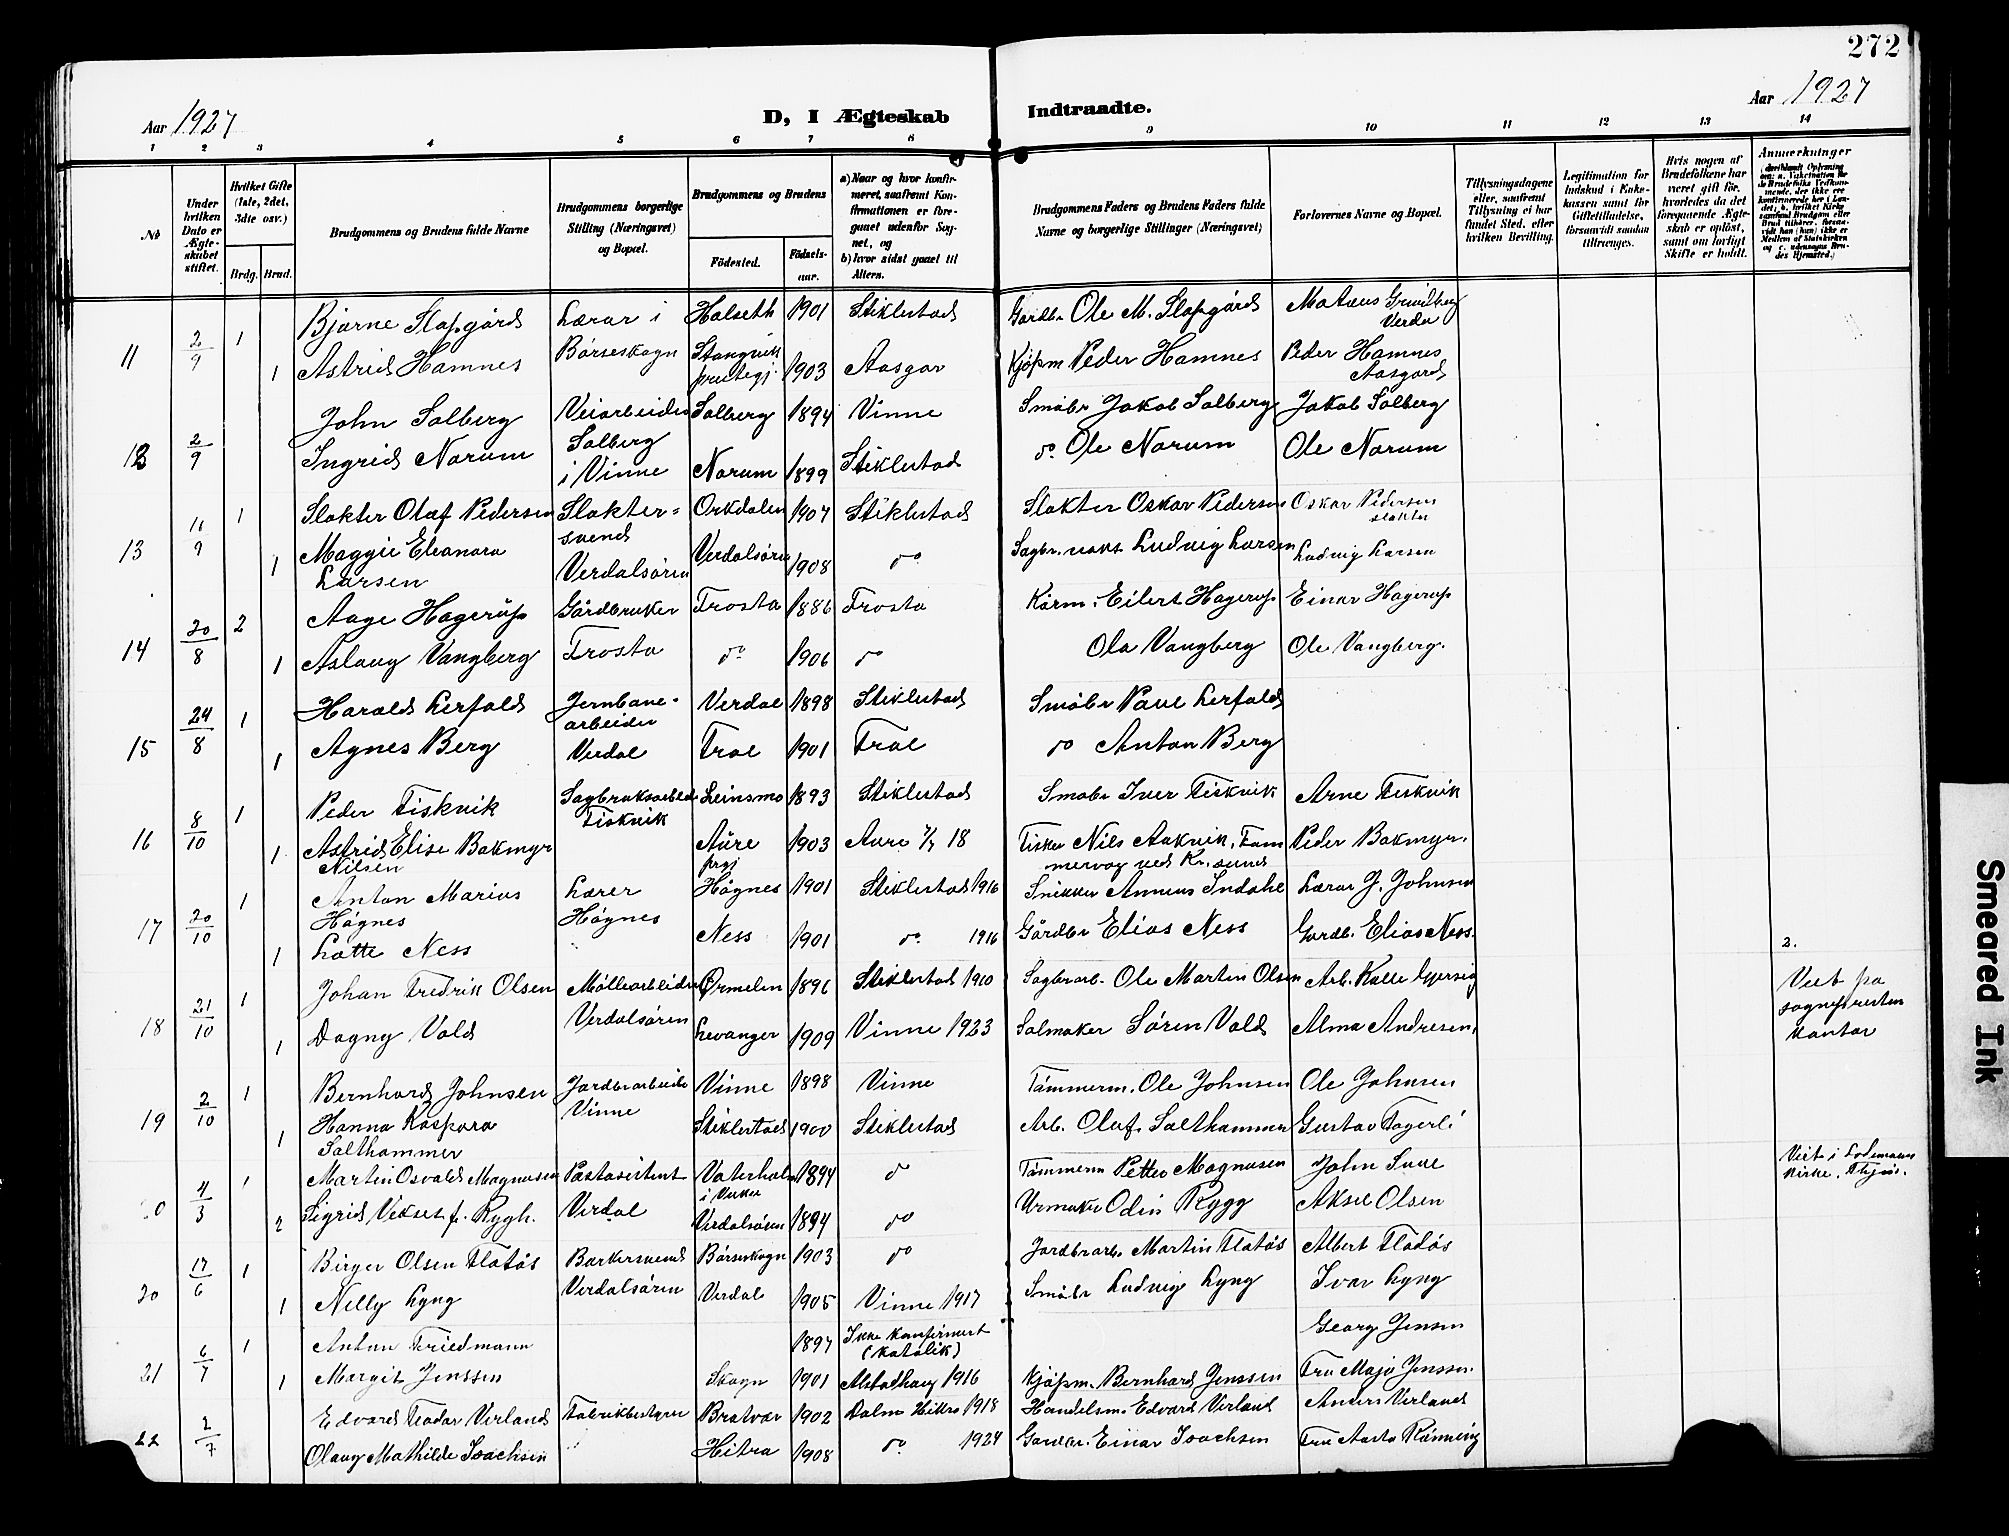 272
Aar 1927
D, I Ægteskab
Indtraadte.
Aar 1927
1 2 3 4 5 6 7 8 9 10 11 12 13 14
No
Under hvilken Dato er Ægteskabet stiftet.
Hvilket Gifte (1ste, 2det, 3die osv.)
Brdg. Brud.
Brudgommens og Brudens fulde Navne
Brudgommens borgerlige Stilling (Næringsvei) og Bopæl.
Brudgommens og Brudens
Fødested.
Fødselsaar.
a) Naar og hvor konfirmeret, saafremt Konfirmationen er foregaaet udenfor Sognet, og
b) hvor sidst gaaet til Alters.
Brudgommens Faders og Brudens Faders fulde Navne og borgerlige Stillinger (Næringsvei)
Forlovernes Navne og Bopæl.
Tillysningsdagene eller, saafremt Tillysning ei har fundet Sted, efter hvilken Bevilling.
Legitimation for Indskud i Enkekassen samt for Giftetilladelse, forsaavidt saadan tiltrænges.
Hvis nogen af Brudefolkene har været gift før, hvorledes da det foregaaende Ægteskab er opløst, samt om lovligt Skifte er holdt.
Anmerkninger
11 2/9 1 Bjarne Slapgård Lærar i Halseth 1901 Stiklestad Gardbr Ole M. Slapgård Verdu
1 Astrid Hamnes Børseskogn Stangvik prestegj 1903 Aasgar Kjøpm Peder Hamnes Peder Hamnes Aasgard
12 2/9 John Solberg Veiarbeider Solberg 1894 Vinne Småbr Jakob Solberg Jakob Solberg
Ingrid Norum Solberg i Vinne Norum 1899 Stiklestad do Ole Norum Ole Norum
13 11/9 1 Slakter Olaf Pedersen Slaktersvend Orkdalen 1907 Stiklestad Slakter Oskar Pedersen Oskar Pedersen slakter
1 Maggie Eleanora Larsen Verdalsøren Verdalsøren 1908 do Ludvig Larsen Ludvig Larsen
14 20/8 2 Aage Hagerup Gårdbruker Frosta 1886 Frosta Eilert Hagerup Einar Hagerup
1 Aslaug Vangberg Frosta do 1906 do Ola Vangberg Ole Vangberg.
15 24/8 1 Harald Lerfald Jernbanearbeider Verdal 1898 Stiklestad Småbr Paul Lerfald
1 Agnes Berg Verdal Frol 1901 Frol do Anton Berg
16 8/10 1 Peder Fiskvik Sagbruksarbeid Fiskvik Leinsmo 1893 Stiklestad Småbr Iver Fiskvik Arne Fiskvik
1 Astrid Elise Bakmyr Nilsen Aure prgj 1903 Aure 18 Fisker Nils Aakvik, ved Kr.sund Peder Bakmyr.
17 20/10 1 Anton Marius Høgnes Lærer Høgnes Høgnes 1901 Stiklestad 1916 Snikker Anneus Indahl Lærar J. Johnsen
1 Lotte Ness Ness 1901 do 1916 Gårdbr Elias Ness Gardb. Elias Ness.
2.
18 21/10 1 Johan Fredrik Olsen Møllearbeider Ørmelen 1896 Stiklestad 1910 Sagbrarb. Ole Martin Olsen Arb. Kalle
Viet på sogneprestens kontor
1 Dagny Vold Verdalsøren Levanger 1909 Vinne 1923 Salmaker Søren Vold Alma Andresen,
19 2/10 1 Bernhard Johnsen Jordbrarbeider Vinne 1898 Vinne Tømmerm. Ole Johnsen Ole Johnsen
1 Hanna Kaspara Salthammer Vinne Stiklestad 1900 Stiklestad Arb. Olaf Salthammer Gustav Fagerli
20 4/3 1 Martin Osvald Magnusen Postasistent Vaterholm i Vuku 1894 do Tømmerm Petter Magnusen John Suul
2 Sigrid Vekset f. Rygh. Verdal Verdalsøren 1894 do Urmaker Odin Rygg Aksel Olsen
Kirke,
20 17/6 1 Birger Olsen Flatås Bakersvend Børseskogn 1903 do Jordbrarb. Martin Flatås Albert Flatås
1 Nelly Lyng Verdalsøren Verdal 1905 Vinne 1917 Småbr Ludvig Lyng Ivar Lyng
21 6/7 1 Anton Friedmann 1897 Ikke konfirmert (katolik) Georg Jensen
1 Margit Jenssen Skogn 1901 Alstadhaug 1916 Kjøpm. Bernhard Jenssen Fru Maja Jenssen.
22 2/7 Edvard Teodor Verland Fabrikbestyrer Bratvær 1902 Dolm Hitra 1918 Handelsm. Edvard Verland Anders Verland
Olaug Mathilde Joachsen Hitra 1908 do 1924 Gardbr. Einar Joachsen Fru Aasta Rønning
Smeared Ink